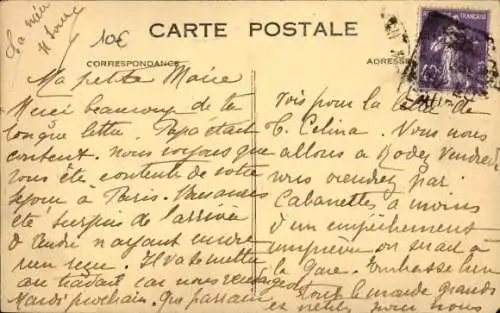 La mère
H Lour
10€
CARTE POSTALE
CORRESPONDANCE
ADRESSE
RÉPUBLIQUE FRANÇAISE
Ma petite Marie
Merci beaucoup de ta
longue lettre. Papa était
content. nous voyons que
vous été contents de votre
séjour à Paris.
été surpris de l'arrivée
d'André n'ayant encore
rien reçu. Il va se mettre
au travail car nous vendangeons
Mardi prochain. que passam
Tois pour la
de
C. Celina. Vous nous
allons a Rodez Vendredi
vous viendrez par
Cabanettes a moins
d'un empêchement
imprévu on serait à
la Gare. Embrasse bien
tout le monde grands
et petits pour nous